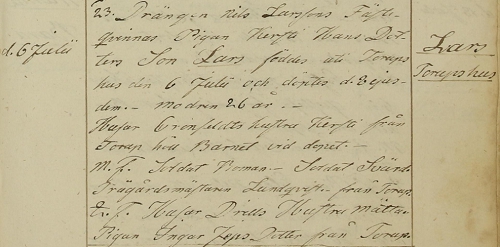 d. 6 Julii
23. Drängen Nils Larssons Fäste-
qvinnas Pigan Kersti Hans Dot-
ters Son Lars föddes uti Torups
hus den 6 Julii och döptes d. 8 ejus-
dem. - modren 26 år. -
Husar Cronfeldts hustru Kersti från
Torup höll Barnet vid dopet. -
M. F. Soldat Boman - Soldat Svärd
Trägårdsmästaren Lundqvist - från Torup.
Q. F. Husar Drells Hustru Mätta
Pigan Ingar Jeps Dotter från Torup.
Lars
Torupshus